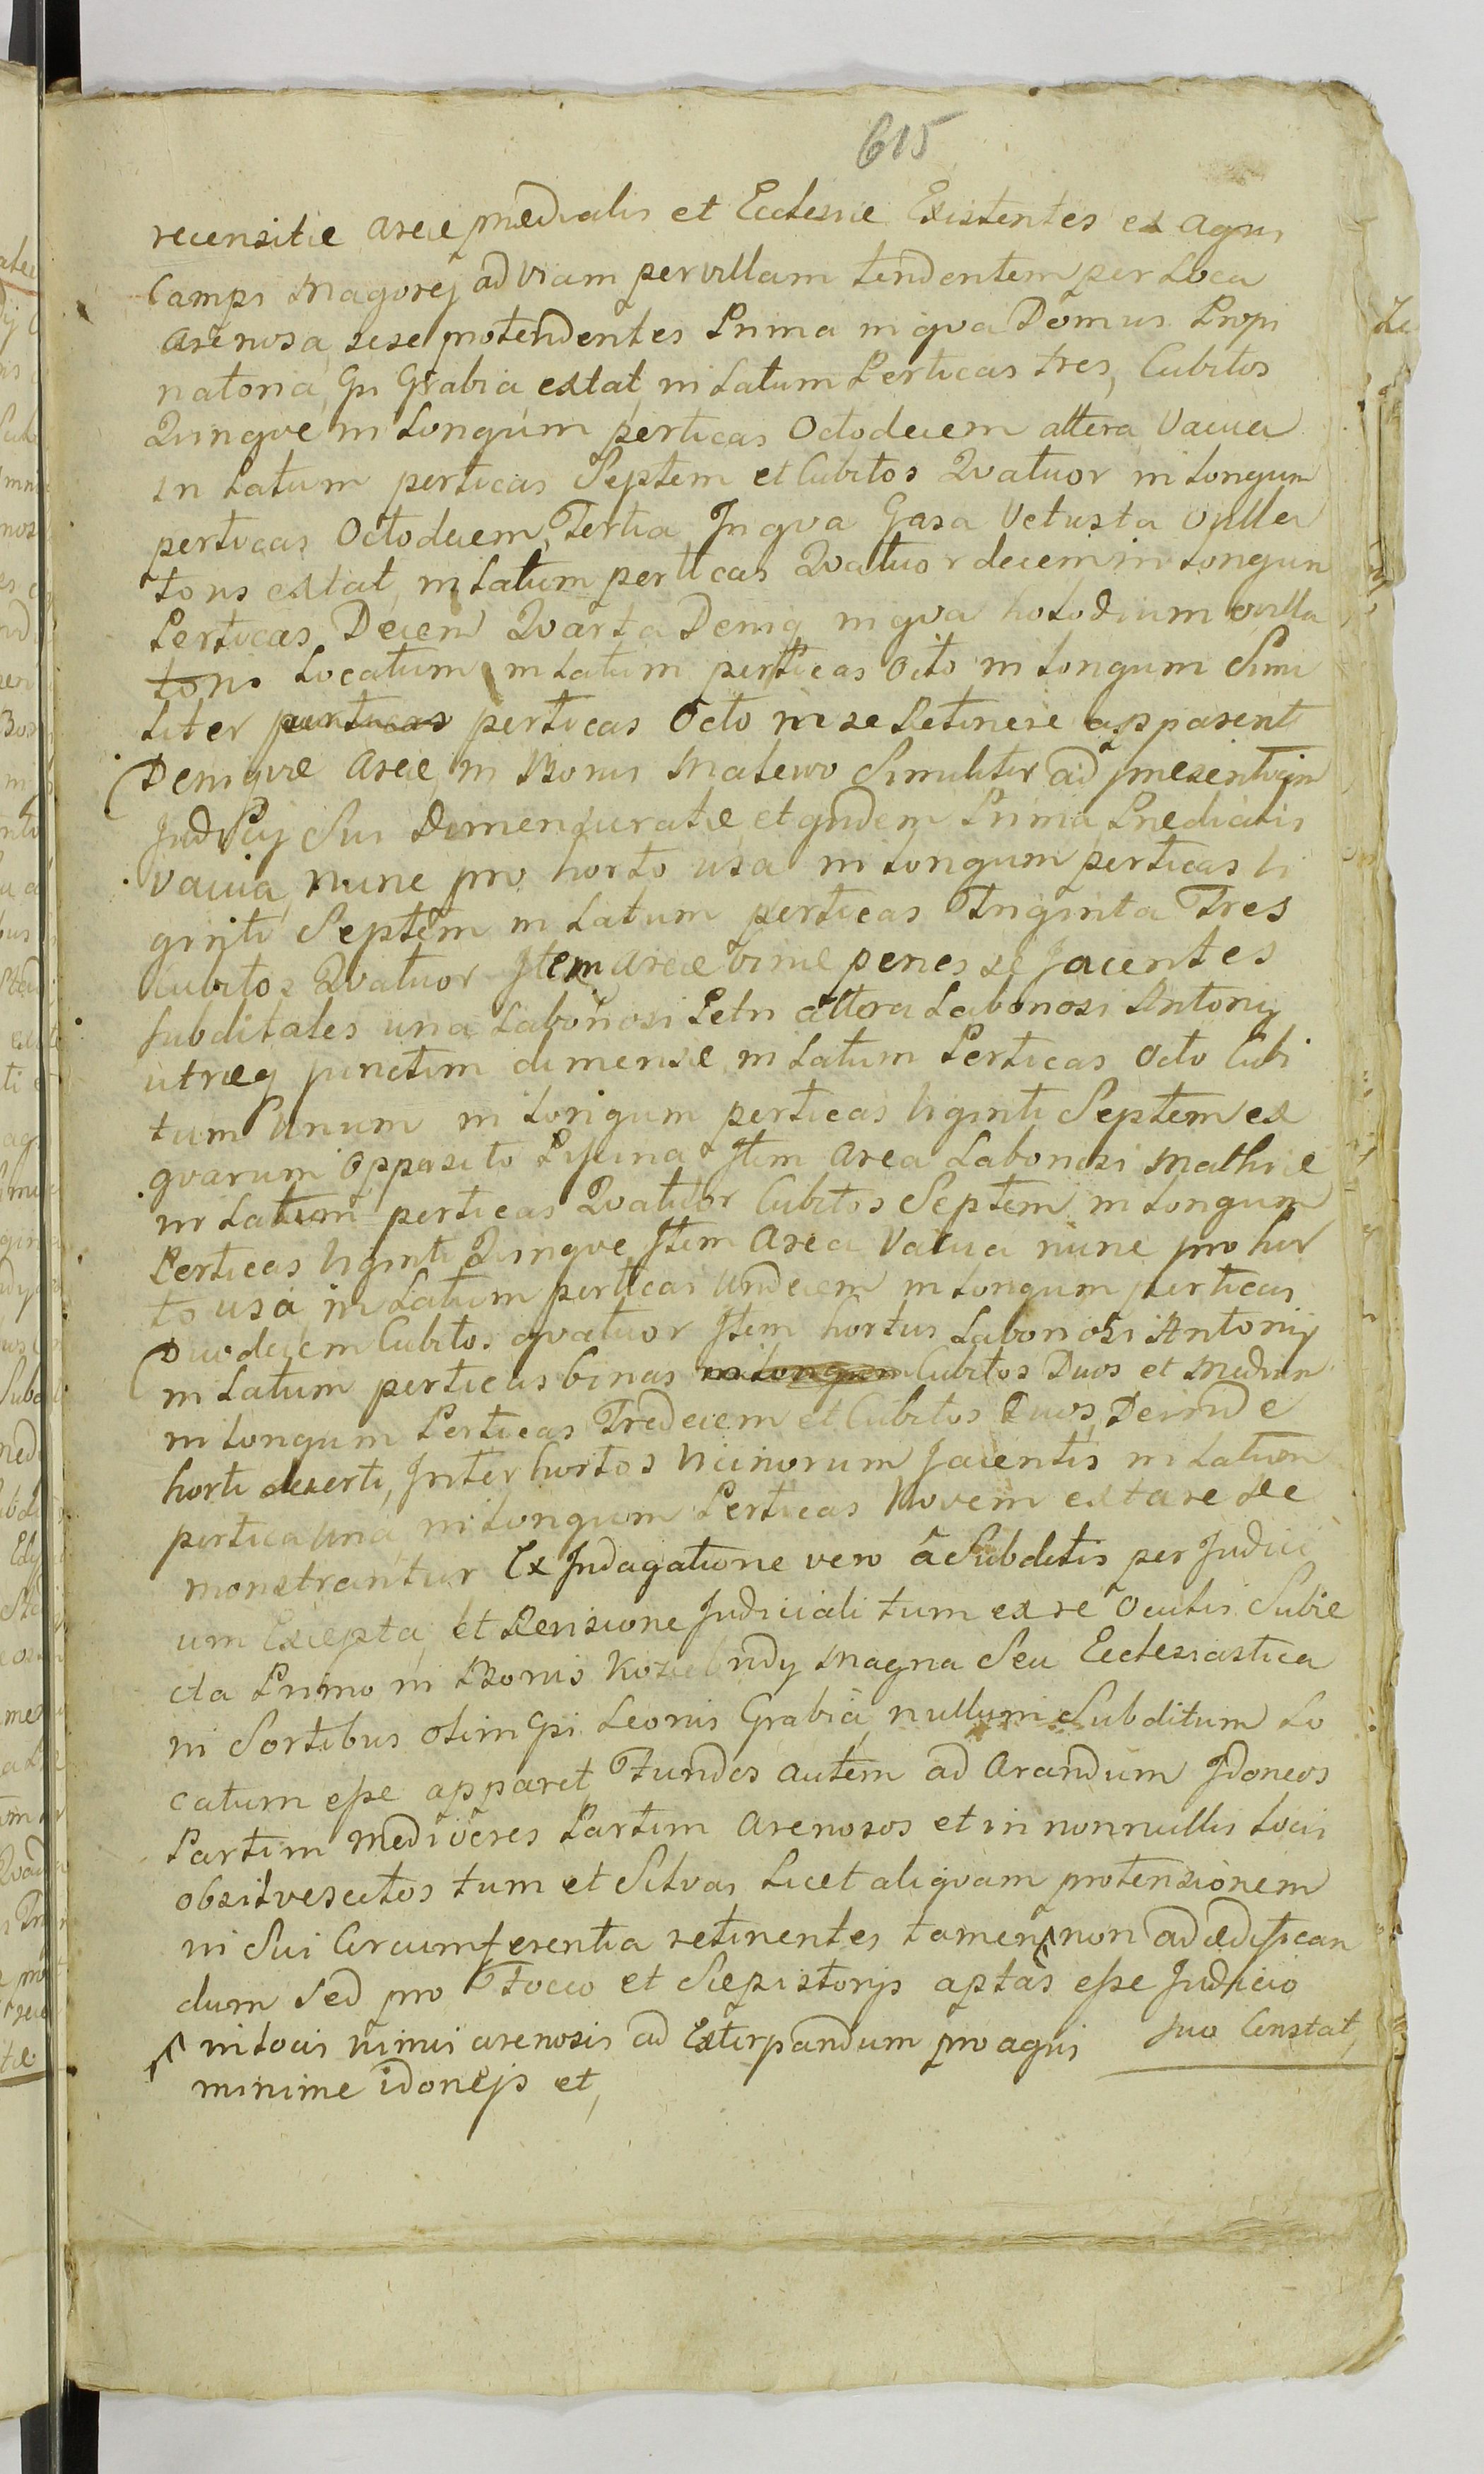 615
recensitæ areæ prædialis et Ecclesiæ Existentes ex agris
Campi Magorej ad viam per villam tendentem per Loca
arenosa sese protendentes Prima in qva Domus Propi
natoria, Gsi Grabia extat in Latum Perticas tres, Cubitos
Qvinqve in Longum perticas Octodecem altera Vacua
in Latum perticas Septem et Cubitos Qvatuor in Longum
perticas Octodecem, Tertia In qva Gasa Vetusta Villa
toris extat, in Latum perticas Qvatuordecem in Longum
Perticas Decem Qvarta Deniq in qva hotodium villa
toris Locatum in Latum perticas Octo in Longum Simi
liter perticas perticas Octo in se Retinere apparent
Deniqve areæ in Bonis Malewo Similiter ad præsentiam
Judicij Sui Dimensuratæ et qvidem Prima Prædialis
vacua, nunc pro horto usa in Longum perticas Vi
ginti Septem in Latum perticas Triginta Tres
Cubitos Qvatuor Item areæ binæ penes se Jacentes
Subditales una Laboriosi Petri altera Laboriosi Antonij
utræq punctim dimensæ in Latum Perticas Octo Cubi
tum Unum in Longum perticas Viginti Septem ex
qvarum opposito Piscina Item area Laboriosi Mathiæ
in Latum perticas Qvatuor Cubitos Septem in Longum
Perticas Viginti Qvinqve Item area Vacua nunc pro hor
to usa in Latum perticas Undecem in Longum perticas
Duodecem Cubitos qvatuor Item hortus Laboriosi Antonij
in Latum perticas binas in Longum Cubitos Duos et Medium
in Longum Perticas Tredecem et Cubitos Duos, Deinde
horti deserti, Inter hortos Vicinorum Jacentis in Latum
pertica una in Longum Perticas Novem extare de
monstrantur Ex Indagatione vero â Subditis per Judici
um Excepta, et Revisione Judiciali tum ex re Oculis Subie
cta Primo in Bonis Koziebrody Magna Seu Ecclesiastica
in Sortibus olim Gsi Leonis Grabia, nullum Subditum Lo
catum esse apparet, Fundos autem ad arandum Idoneos
Partim mediocres Partim arenosos et in nonnullis Locis
obsilvescitos tum et Silvas Licet aliqvam protensionem
in Sui Circumferentia retinentes tamen non ad ædifican
dum Sed pro Focco et Sæpistorijs aptas esse Judicio
Suo Constat,
in Locis nimis arenosis ad Extirpandum pro agris
minime idoneis et,